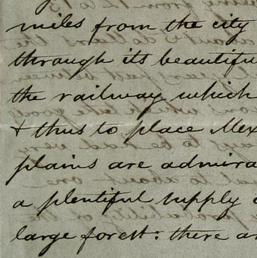 miles from the city
through its beautiful
the railway which
& thus to place Mex
plains are admira
a plentiful supply
large forest: there a